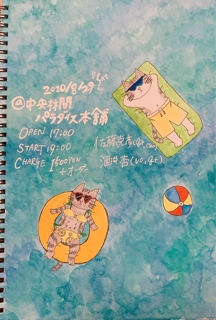 2020/8/29 Sat
@中央林間
パラダイス本舗
OPEN 17:00
START 19:00
CHARGE 1500YEN
+オーダー
佐藤
酒井杏(vo,gt)